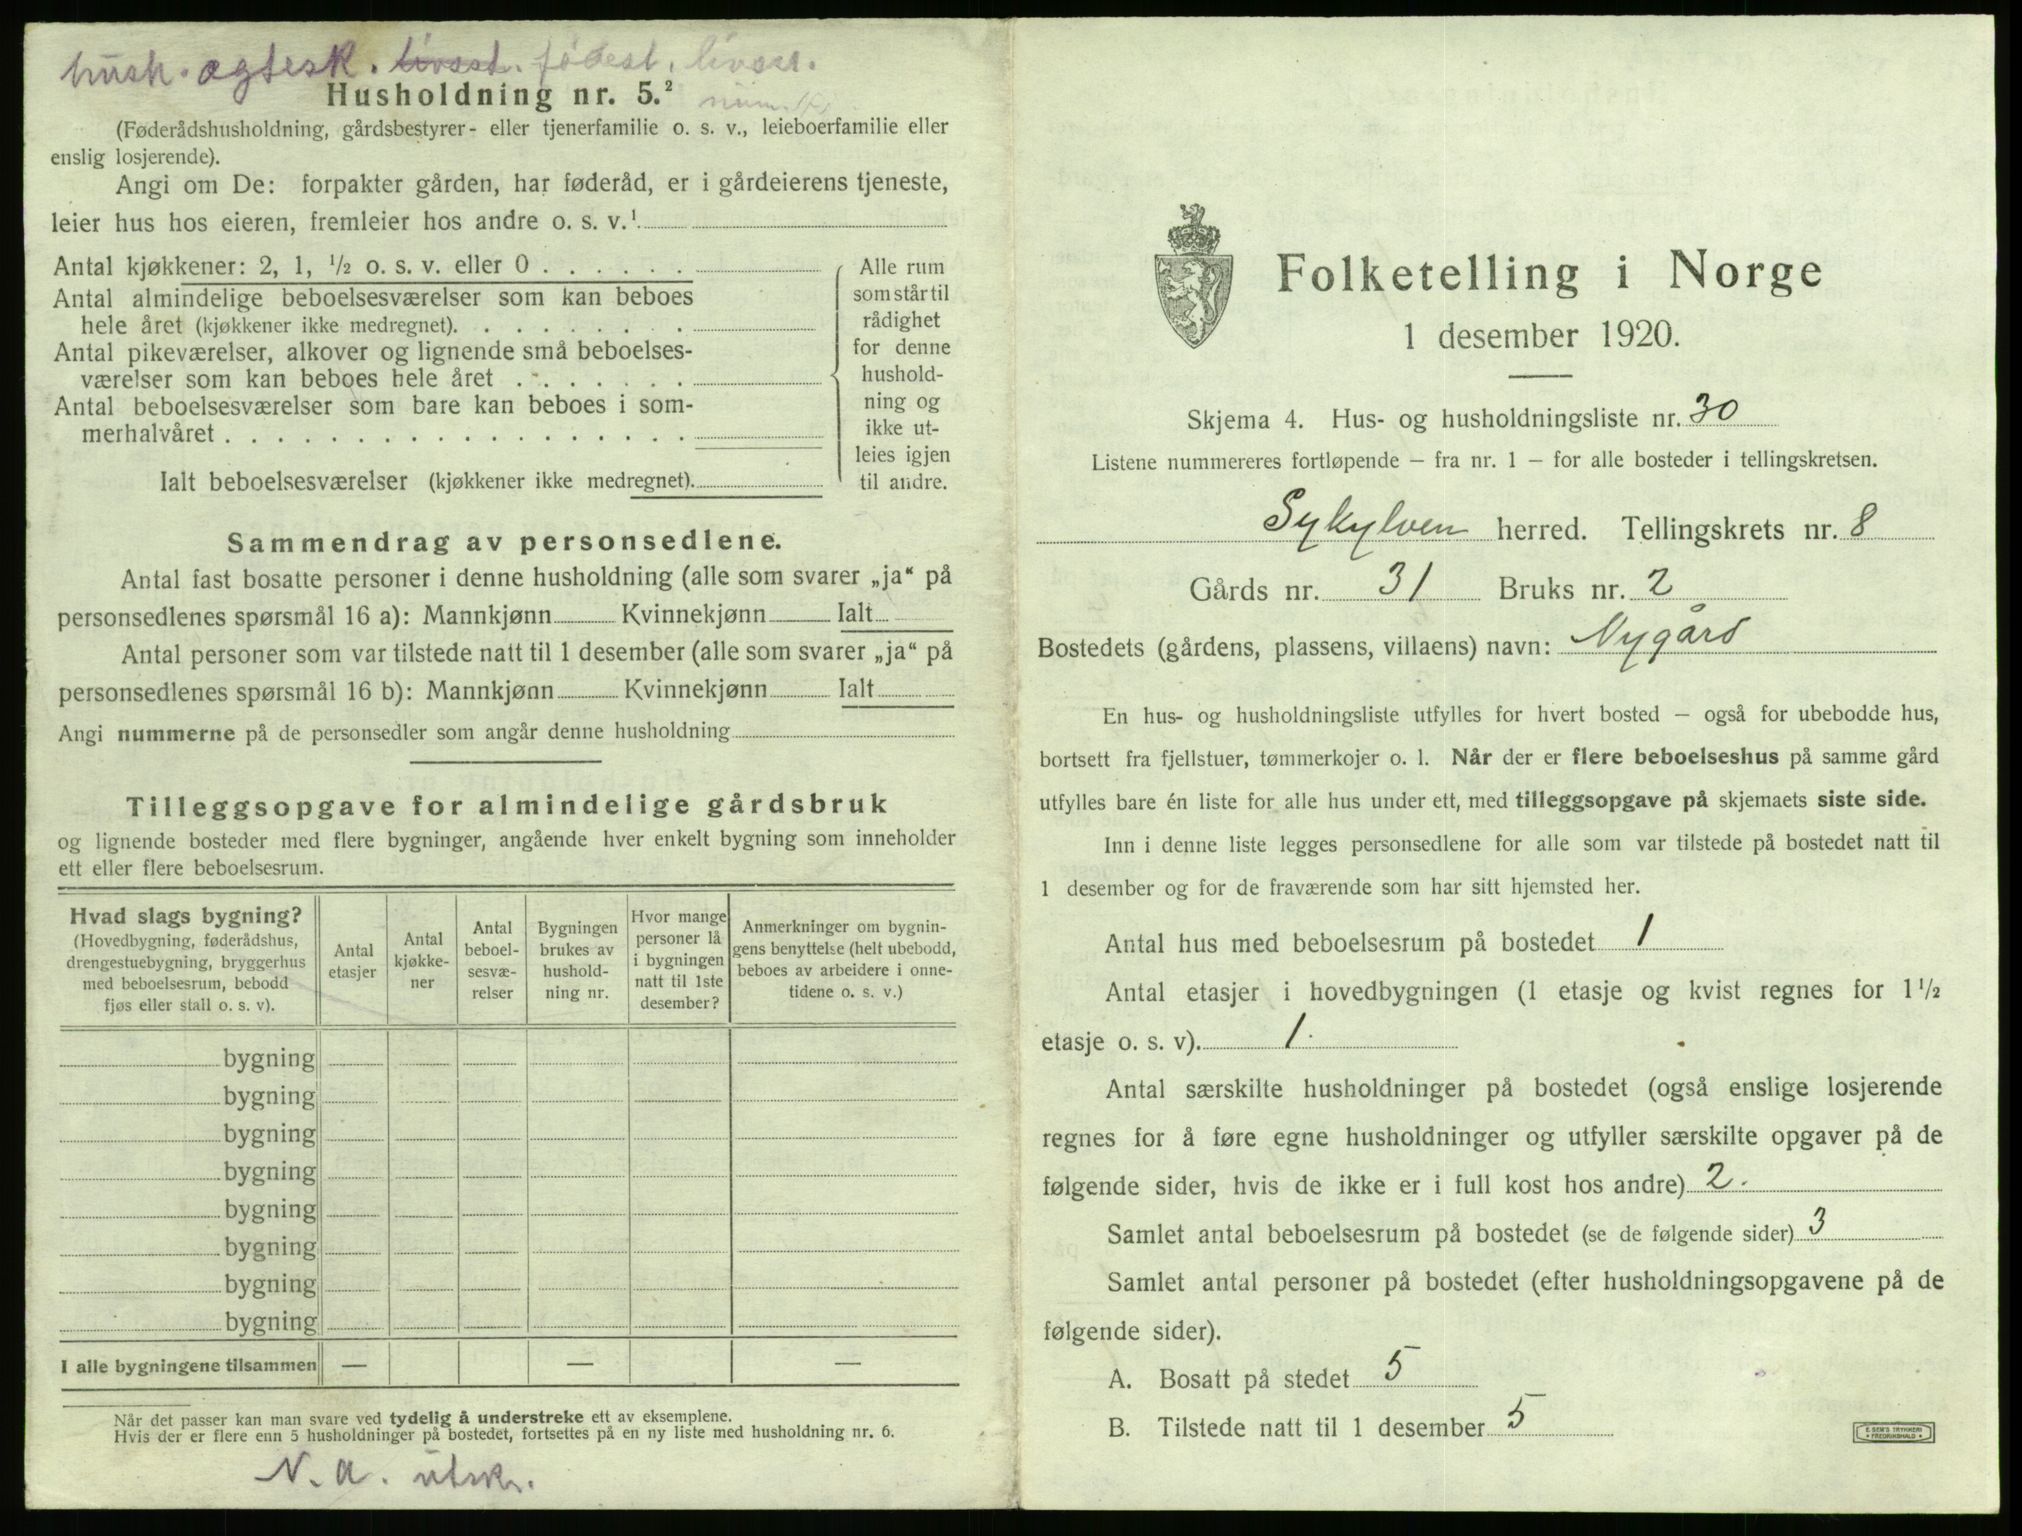 husk. ægtesk. livsst. fødest. livsst.
Husholdning nr. 5.²
(Føderådshusholdning, gårdsbestyrer- eller tjenerfamilie o. s. v., leieboerfamilie eller
enslig losjerende).
Angi om De: forpakter gården, har føderåd, er i gårdeierens tjeneste,
leier hus hos eieren, fremleier hos andre o. s. v.¹
Antal kjøkkener: 2, 1, ½ o. s. v. eller 0 . . . . . .
Antal almindelige beboelsesværelser som kan beboes
hele året (kjøkkener ikke medregnet). . . . . . . .
Antal pikeværelser, alkover og lignende små beboelses-
værelser som kan beboes hele året . . . . . . .
Antal beboelsesværelser som bare kan beboes i som-
merhalvåret . . . . . . . . . . . . . . . . . .
Ialt beboelsesværelser (kjøkkener ikke medregnet).
Alle rum
som står til
rådighet
for denne
hushold-
ning og
ikke ut-
leies igjen
til andre.
Sammendrag av personsedlene.
Antal fast bosatte personer i denne husholdning (alle som svarer „ja“ på
personsedlenes spørsmål 16 a): Mannkjønn Kvinnekjønn Ialt
Antal personer som var tilstede natt til 1 desember (alle som svarer „ja“ på
personsedlenes spørsmål 16 b): Mannkjønn Kvinnekjønn Ialt
Angi nummerne på de personsedler som angår denne husholdning
Tilleggsopgave for almindelige gårdsbruk
og lignende bosteder med flere bygninger, angående hver enkelt bygning som inneholder
ett eller flere beboelsesrum.
Hvad slags bygning?
(Hovedbygning, føderådshus,
drengestuebygning, bryggerhus
med beboelsesrum, bebodd
fjøs eller stall o. s. v).
Antal
etasjer
Antal
kjøkke-
ner
Antal
beboel-
sesvæ-
relser
Bygningen
brukes av
hushold-
ning nr.
Hvor mange
personer lå
i bygningen
natt til 1ste
desember?
Anmerkninger om bygnin-
gens benyttelse (helt ubebodd,
beboes av arbeidere i onne-
tidene o. s. v.)
bygning
bygning
bygning
bygning
bygning
bygning
bygning
bygning
I alle bygningene tilsammen — — —
Når det passer kan man svare ved tydelig å understreke ett av eksemplene.
Hvis der er flere enn 5 husholdninger på bostedet, fortsettes på en ny liste med husholdning nr. 6.
N. A. utskr.
Folketelling i Norge
1 desember 1920.
Skjema 4. Hus- og husholdningsliste nr. 30
Listene nummereres fortløpende — fra nr. 1 — for alle bosteder i tellingskretsen.
Sykylven herred. Tellingskrets nr. 8
Gårds nr. 31 Bruks nr. 2
Bostedets (gårdens, plassens, villaens) navn: Nygård
En hus- og husholdningsliste utfylles for hvert bosted — også for ubebodde hus,
bortsett fra fjellstuer, tømmerkojer o. l. Når der er flere beboelseshus på samme gård
utfylles bare én liste for alle hus under ett, med tilleggsopgave på skjemaets siste side.
Inn i denne liste legges personsedlene for alle som var tilstede på bostedet natt til
1 desember og for de fraværende som har sitt hjemsted her.
Antal hus med beboelsesrum på bostedet 1
Antal etasjer i hovedbygningen (1 etasje og kvist regnes for 1½
etasje o. s. v). 1.
Antal særskilte husholdninger på bostedet (også enslige losjerende
regnes for å føre egne husholdninger og utfyller særskilte opgaver på de
følgende sider, hvis de ikke er i full kost hos andre) 2.
Samlet antal beboelsesrum på bostedet (se de følgende sider) 3
Samlet antal personer på bostedet (efter husholdningsopgavene på de
følgende sider).
A. Bosatt på stedet 5
B. Tilstede natt til 1 desember 5
E. SEM'S TRYKKERI
FREDRIKSHALD